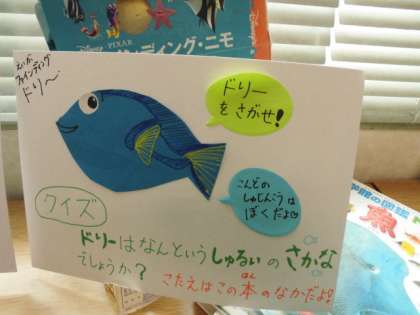 Disney PIXAR
ディング・ニモ
えいが
ファインディング
ドリ〜
ドリー
をさがせ!
こんどの
しゅじんこうは
ぼくだよ
クイズ
ドリーはなんというしゅるいのさかな
でしょうか?
こたえはこの本のなかだよ!
ほん
の図鑑
魚